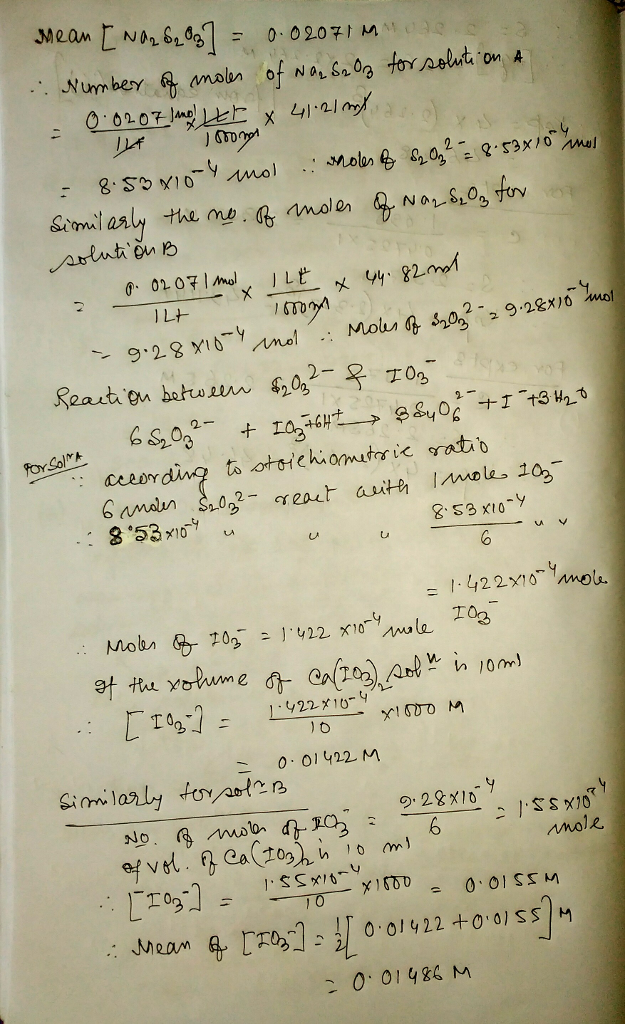 Mean [Na₂S₂O₃] = 0.02071 M
∴ Number of moles of Na₂S₂O₃ for solution A
= 0.02071 mol / 1 Lt × 1 Lt / 1000 ml × 41.21 ml
= 8.53 × 10⁻⁴ mol ∴ Moles of S₂O₃²⁻ = 8.53 × 10⁻⁴ mol
Similarly the no. of moles of Na₂S₂O₃ for
solution B
= 0.02071 mol / 1 Lt × 1 Lt / 1000 ml × 44.82 ml
= 9.28 × 10⁻⁴ mol ∴ Moles of S₂O₃²⁻ = 9.28 × 10⁻⁴ mol
Reaction between S₂O₃²⁻ & IO₃⁻
6 S₂O₃²⁻ + IO₃⁻ + 6H⁺ → 3 S₄O₆²⁻ + I⁻ + 3H₂O
For Solⁿ A ∵ according to stoichiometric ratio
6 moles S₂O₃²⁻ react with 1 mole IO₃⁻
∴ 8.53 × 10⁻⁴ " " " 8.53 × 10⁻⁴ / 6 " "
= 1.422 × 10⁻⁴ mole IO₃⁻
∴ Moles of IO₃⁻ = 1.422 × 10⁻⁴ mole
If the volume of Ca(IO₃)₂ solⁿ is 10 ml
∴ [IO₃⁻] = 1.422 × 10⁻⁴ / 10 × 1000 M
= 0.01422 M
Similarly for solⁿ B
No. of moles of IO₃⁻ = 9.28 × 10⁻⁴ / 6 = 1.55 × 10⁻⁴ mole
If vol. of Ca(IO₃)₂ is 10 ml
∴ [IO₃⁻] = 1.55 × 10⁻⁴ / 10 × 1000 = 0.0155 M
∴ Mean of [IO₃⁻] = 1/2 [0.01422 + 0.0155] M
= 0.01486 M